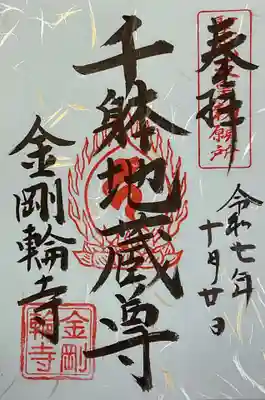 奉拝
令和七年
十月廿日
千躰地蔵尊
金剛輪寺
金剛
輪寺